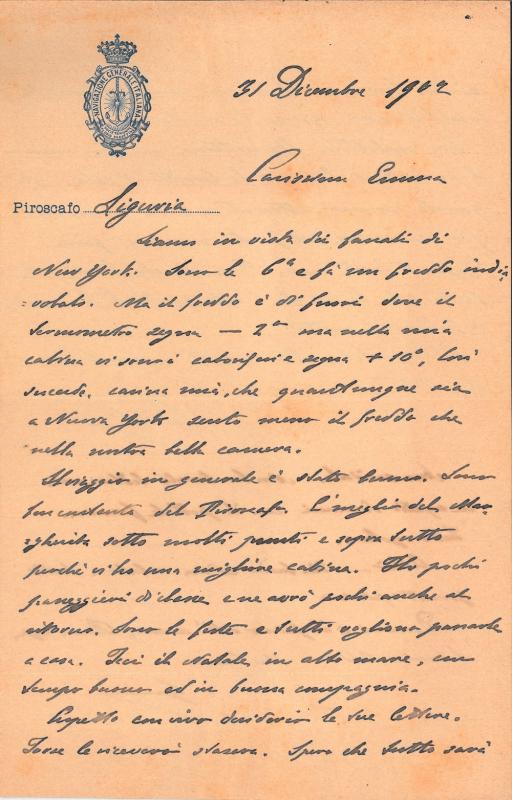 NAVIGAZIONE GENERALE ITALIANA
31 Dicembre 1902
Carissima Emma
Piroscafo Liguria
Siamo in vista dei fanali di
New York. Sono le 6ª e fà un freddo india
volato. Ma il freddo è di fuori dove il
termometro segna – 2° ma nella mia
cabina vi sono i caloriferi e segna + 10°, Così
succede, carina mia, che quantunque sia
a Nuova York sento meno il freddo che
nella nostra bella camera.
Il viaggio in generale è stato buono. Sono
ben contento del Piroscafo. È meglio del Mar
gherita sotto molti punti e sopra tutto
perchè vi ho una migliore cabina. Ho pochi
passeggieri di classe e ne avrò pochi anche al
ritorno. Sono le feste e tutti vogliono passarle
a casa. Feci il Natale in alto mare, con
tempo buono ed in buona compagnia.
Aspetto con vivo desiderio le tue lettere.
Forse le riceverò stasera. Spero che tutto sarà